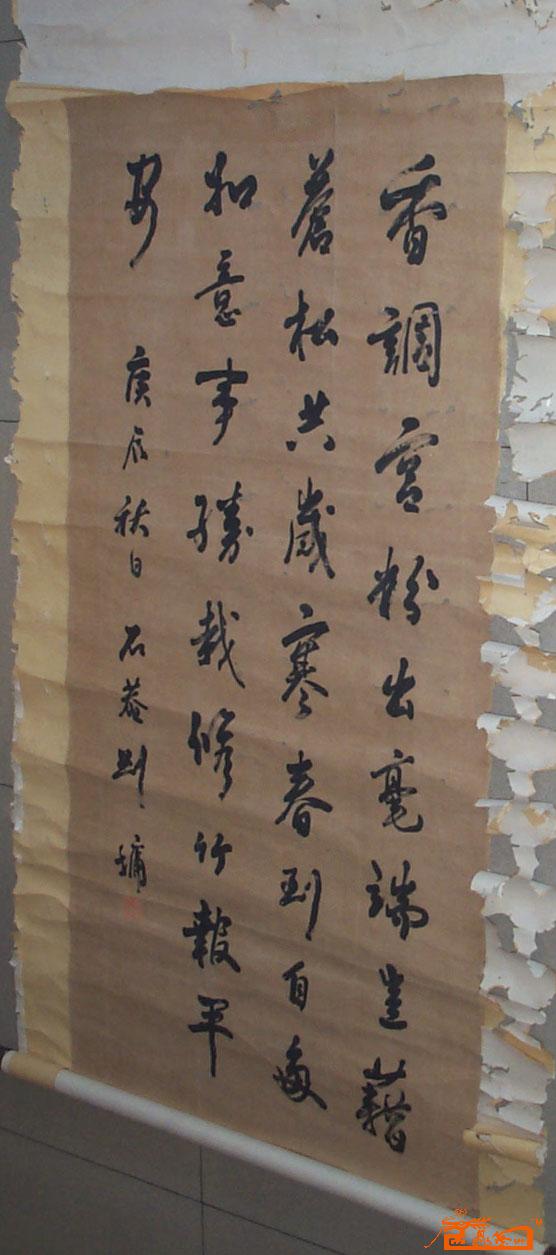 香調宮粉出毫端豈藉
蒼松共歲寒春到自多
如意事勝栽修竹報平
安 庚辰秋日 石菴劉墉